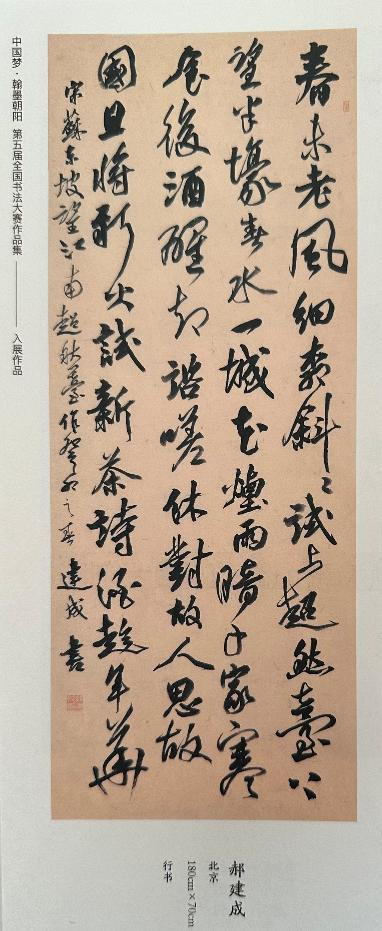 春未老風細柳斜々試上超然臺上
望半壕春水一城花煙雨暗千家寒
食後酒醒却諮嗟休對故人思故
國且將新火試新茶詩酒趁年華
宋蘇東坡望江南超然臺作癸卯之春 建成書
中国梦·翰墨朝阳 第五届全国书法大赛作品集 —— 入展作品
郝建成
北京
180cm×70cm
行书